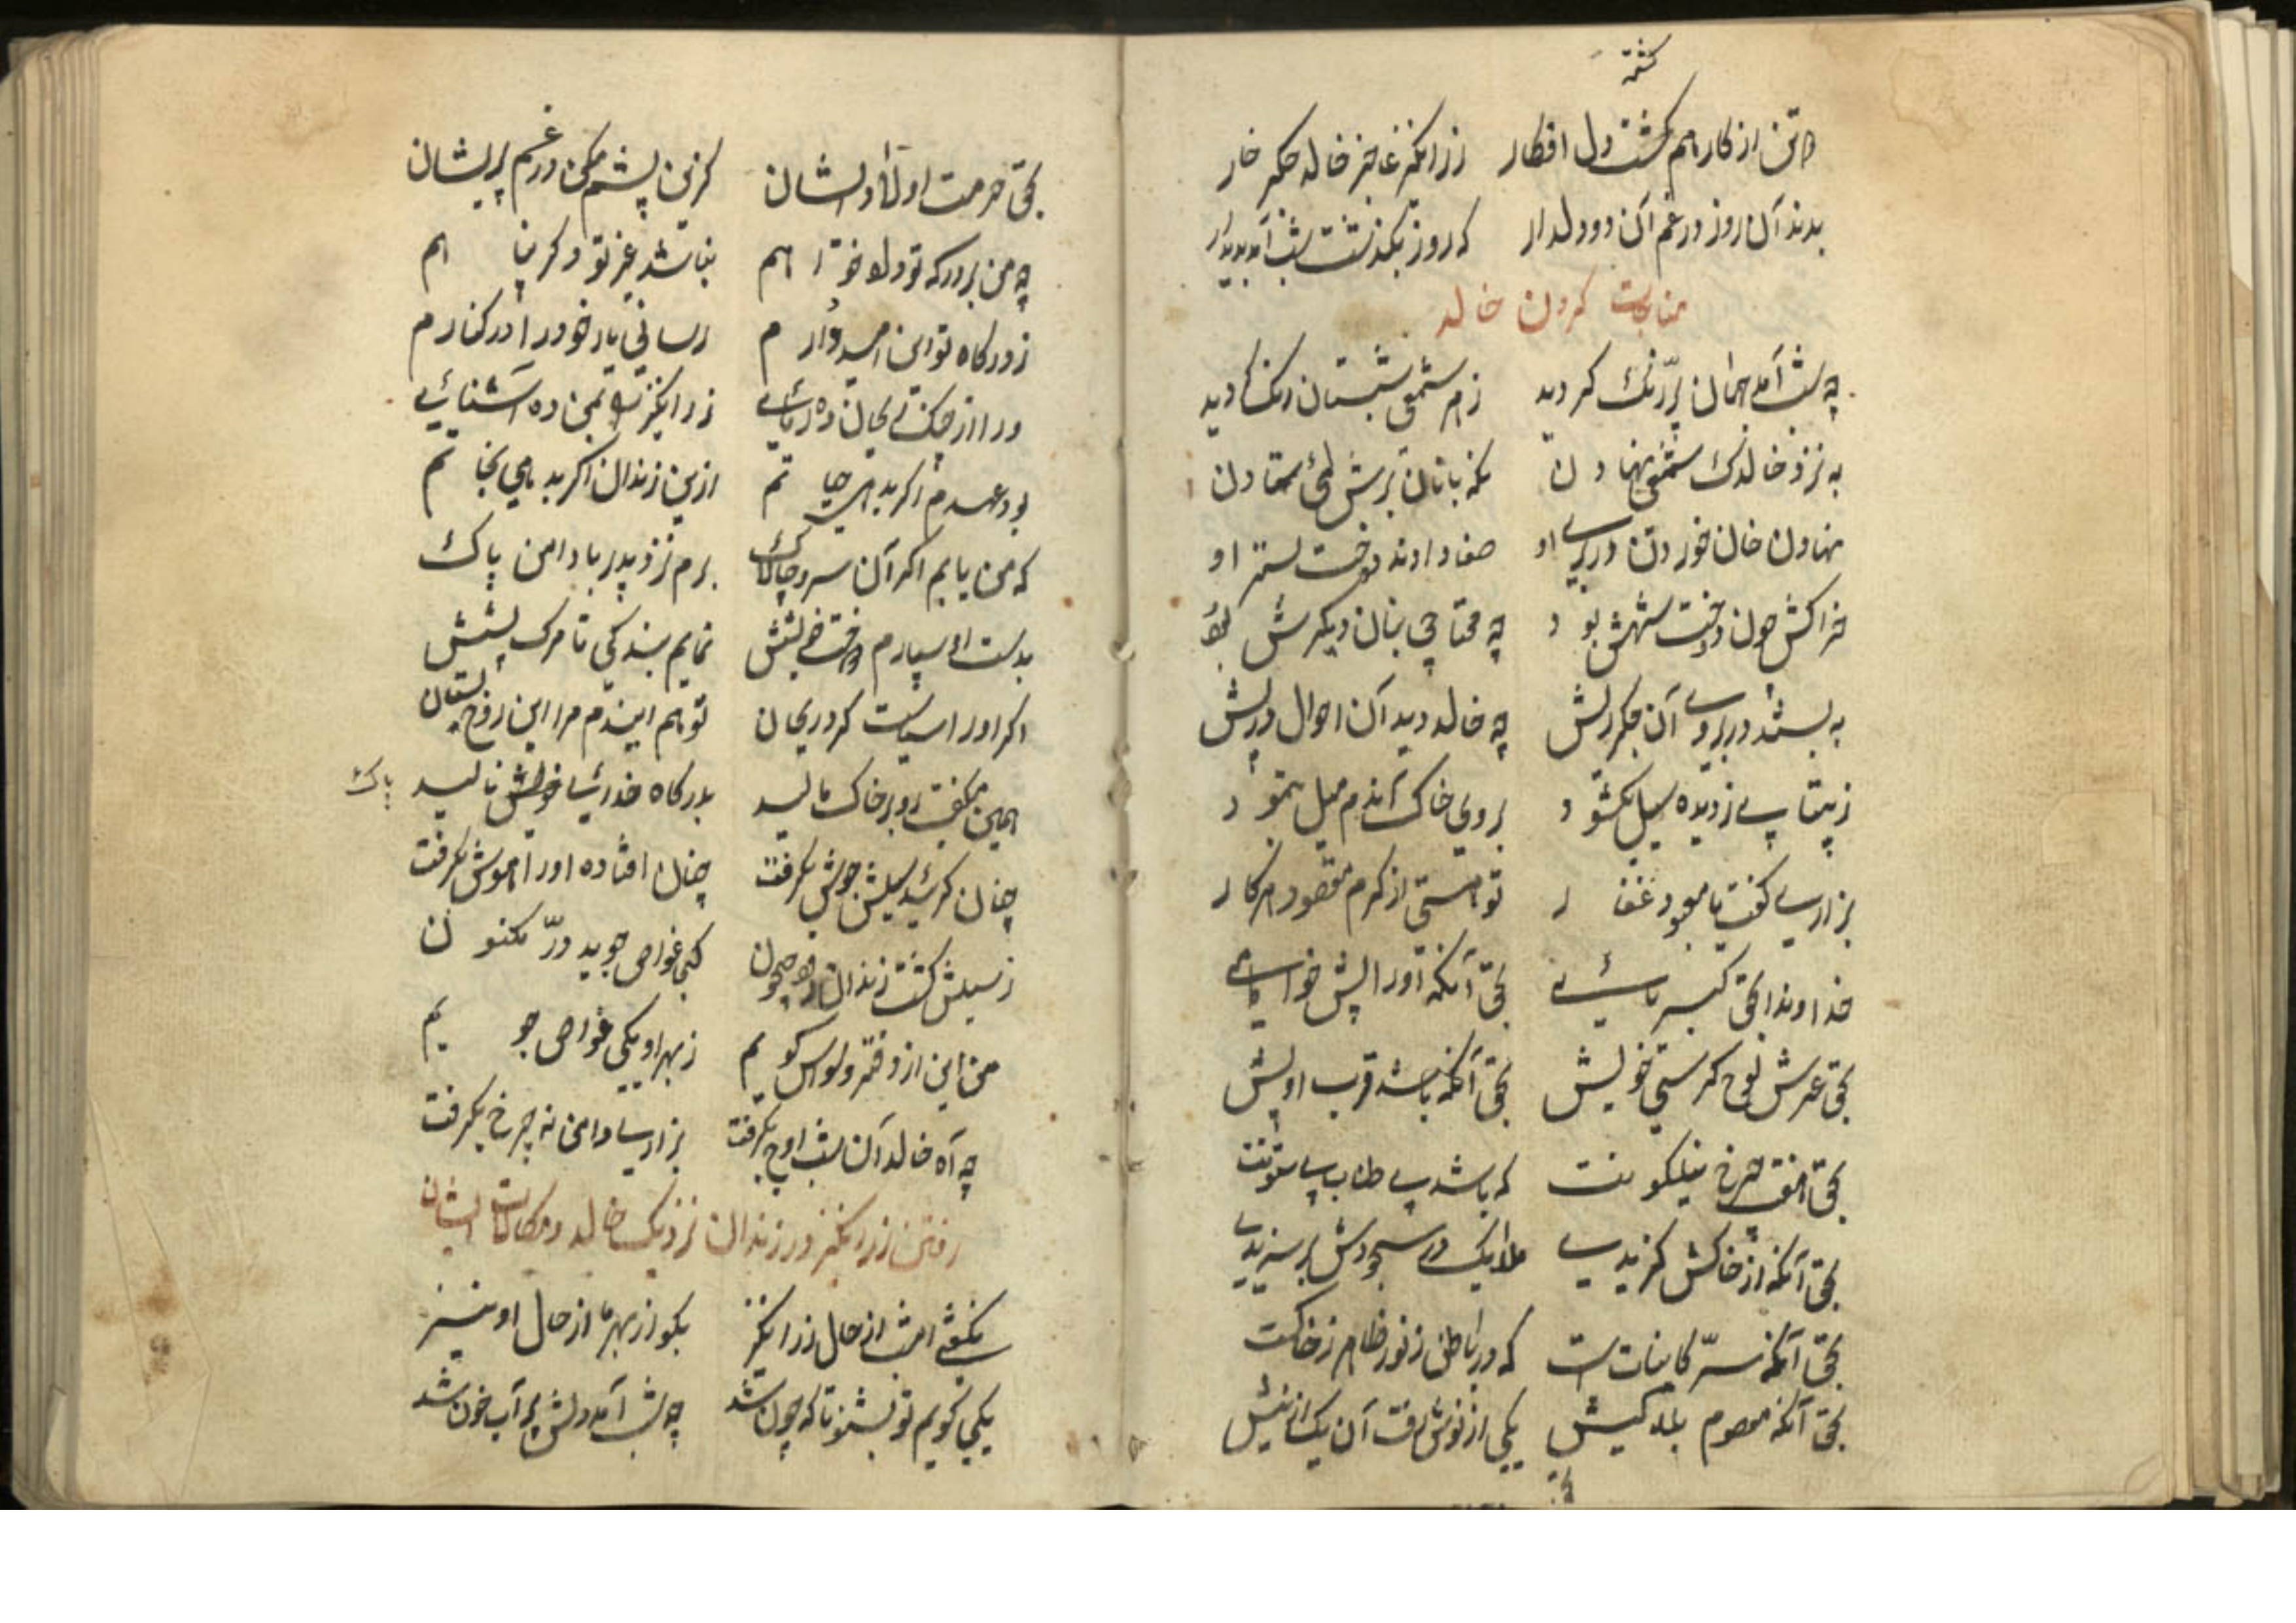 کشته
دو تن از کار هم کشت دل افکار زرانکیز عاجز خالد جکر خار
بدند آن روز در غم آن دو دلدار که روز بکذشت شب آمد پدیدار
مناجات کردن خالد
چه شب آمد جهان پر زنک کردید ز هر شمعی شبستان رنک کردید
به نزد خالد یک شمعی نهادن نکهبانان برش
نهادن خان خوردن در بر او صفا دادند رخت بستر او
خوراکش خون و رخت بود چه محتاجی بنان دیکرش بود
به بستند در بروی آن جکر ریش چه خالد دید آن احوال در پیش
ز بیتابی ز دیده سیل بکشود بروی خاک آندم میل بنمود
بزاری کفت یا معبود غفار تو هستی از کرم مقصود هر کار
خداوندا بحق کبریائی بحق آنکه او را پیش خواهی
بحق عرش لوح کرسی خویش بحق آنکه باشد قرب او پیش
بحق هفت چرخ نیلکونت که باشد بی طناب بی ستونت
بحق آنکه از خاکش کزیدی ملایک در سجودش
بحق آنکه سر کاینات است که در باطن ز نور ز خاکت
بحق آنکه معصوم یکی از
بحق حرمت اولاد ایشان کزین بیشم مکن در غم پریشان
چه من بر درکه تو دلو خواهم نباشد غیر تو دیکر پناهم
ز درکاه تو این امیدوارم رسانی یار خود را در کنارم
ورا از چنک بیجان ده رهائی زرانکیز را بمن ده آشنائی
بود عهدم اکر بدهی حیاتم ازین زندان اکر بدهی نجاتم
که من یابم اکر آن سرو چالاک برم نزد پدر با دامن پاک
بدست او سپارم دخت خویشش نمایم بندکی تا مرک پیشش
اکر او را سیاست کرد ریحان تو هم ایندم مرا این روح بستان
همین میکفت رو بر خاک مالید بدرکاه خدای خویش نالید
پاک
چنان کریید سیلش جوش بکرفت چنان افتاده او را هوش بکرفت
ز سیلش کشت زندان کهی غواص جوید در مکنون
من این از دفتر کویم ز بهر او یکی غواص جویم
چه آه خالد آن شب اوج بکرفت بزاری دامن نه چرخ بکرفت
رفتن زرانکیز در زندان نزدیک خالد و مکالمات ایشان
بکفتی امشب از حال زرانکیز بکو از بهر ما از حال او نیز
یکی کویم تو بشنو تا که چون شد چه شب آمد دلش پر آب خون شد